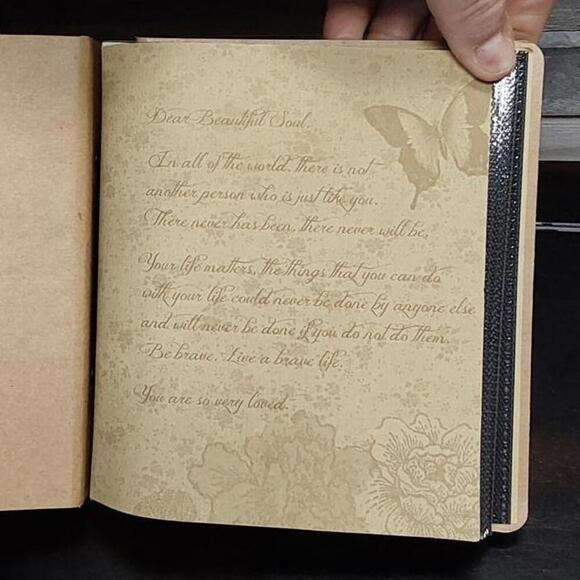 Dear Beautiful Soul,
In all of the world, there is not
another person who is just like you.
There never has been, there never will be.
Your life matters, the things that you can do
with your life could never be done by anyone else
and will never be done if you do not do them.
Be brave. Live a brave life.
You are so very loved.